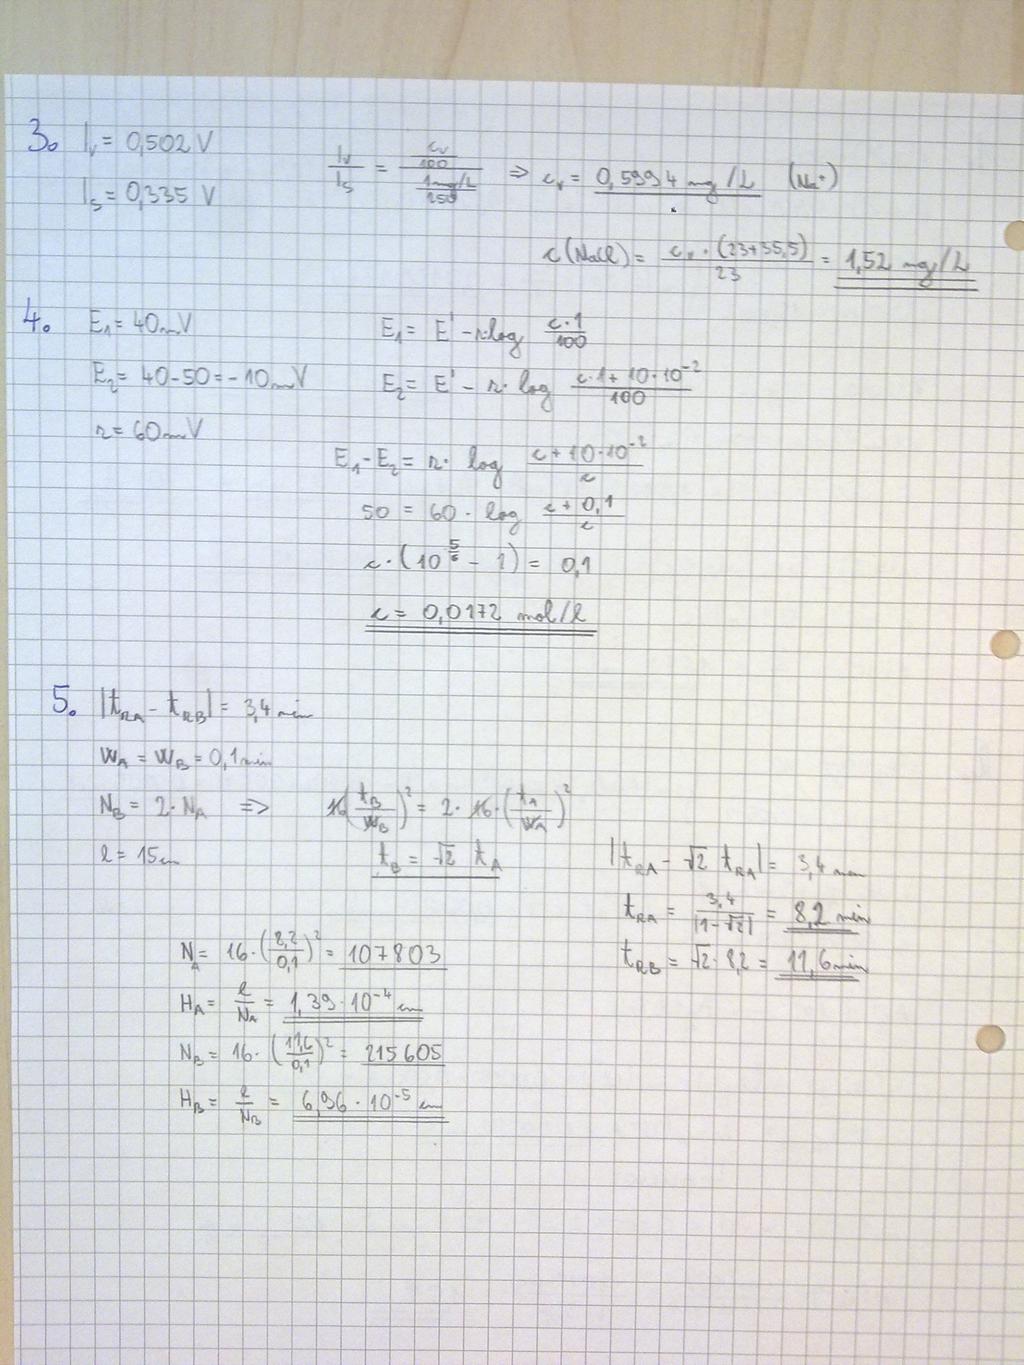 3. I_v = 0,502 V
I_s = 0,335 V
I_v/I_s = (c_v/100)/(1mg/L/250) => c_v = 0,5994 mg/L (Na⁺)
c(NaCl) = c_v · (23+35,5)/23 = 1,52 mg/L
4. E₁ = 40mV
E₂ = 40-50 = -10mV
r = 60mV
E₁ = E' - r·log c·1/100
E₂ = E' - r· log (c·1 + 10·10⁻²)/100
E₁-E₂ = r· log (c + 10·10⁻²)/c
50 = 60 · log (c + 0,1)/c
c·(10^(5/6) - 1) = 0,1
c = 0,0172 mol/l
5. |t_RA - t_RB| = 3,4 min
W_A = W_B = 0,1min
N_B = 2·N_A => 16(t_B/W_B)² = 2·16·(t_A/W_A)²
l = 15cm
t_B = √2 t_A
|t_RA - √2 t_RA| = 3,4 min
t_RA = 3,4/|1-√2| = 8,2 min
t_RB = √2·8,2 = 11,6min
N_A = 16·(8,2/0,1)² = 107803
H_A = l/N_A = 1,39·10⁻⁴ cm
N_B = 16·(11,6/0,1)² = 215605
H_B = l/N_B = 6,96·10⁻⁵ cm